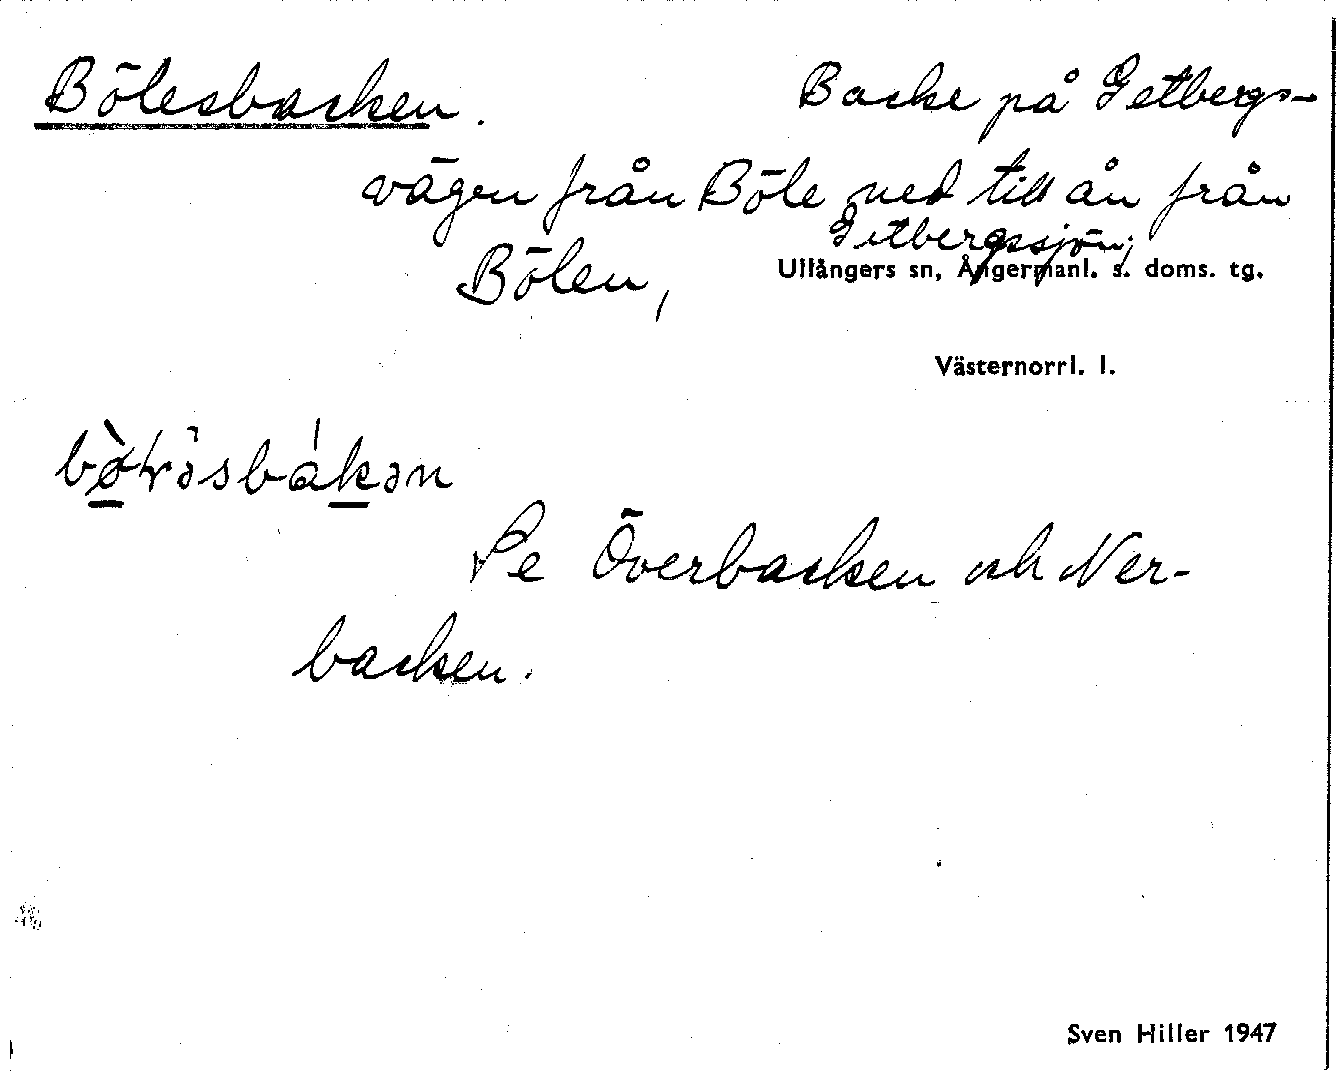 Bölesbacken. Backe på Getbergs-
vägen från Böle ned till ån från
Getbergssjön;
Bölen,
Ullångers sn, Ångermanl. s. doms. tg.
Västernorrl. l.
Se Överbacken och Ner-
backen.
Sven Hiller 1947